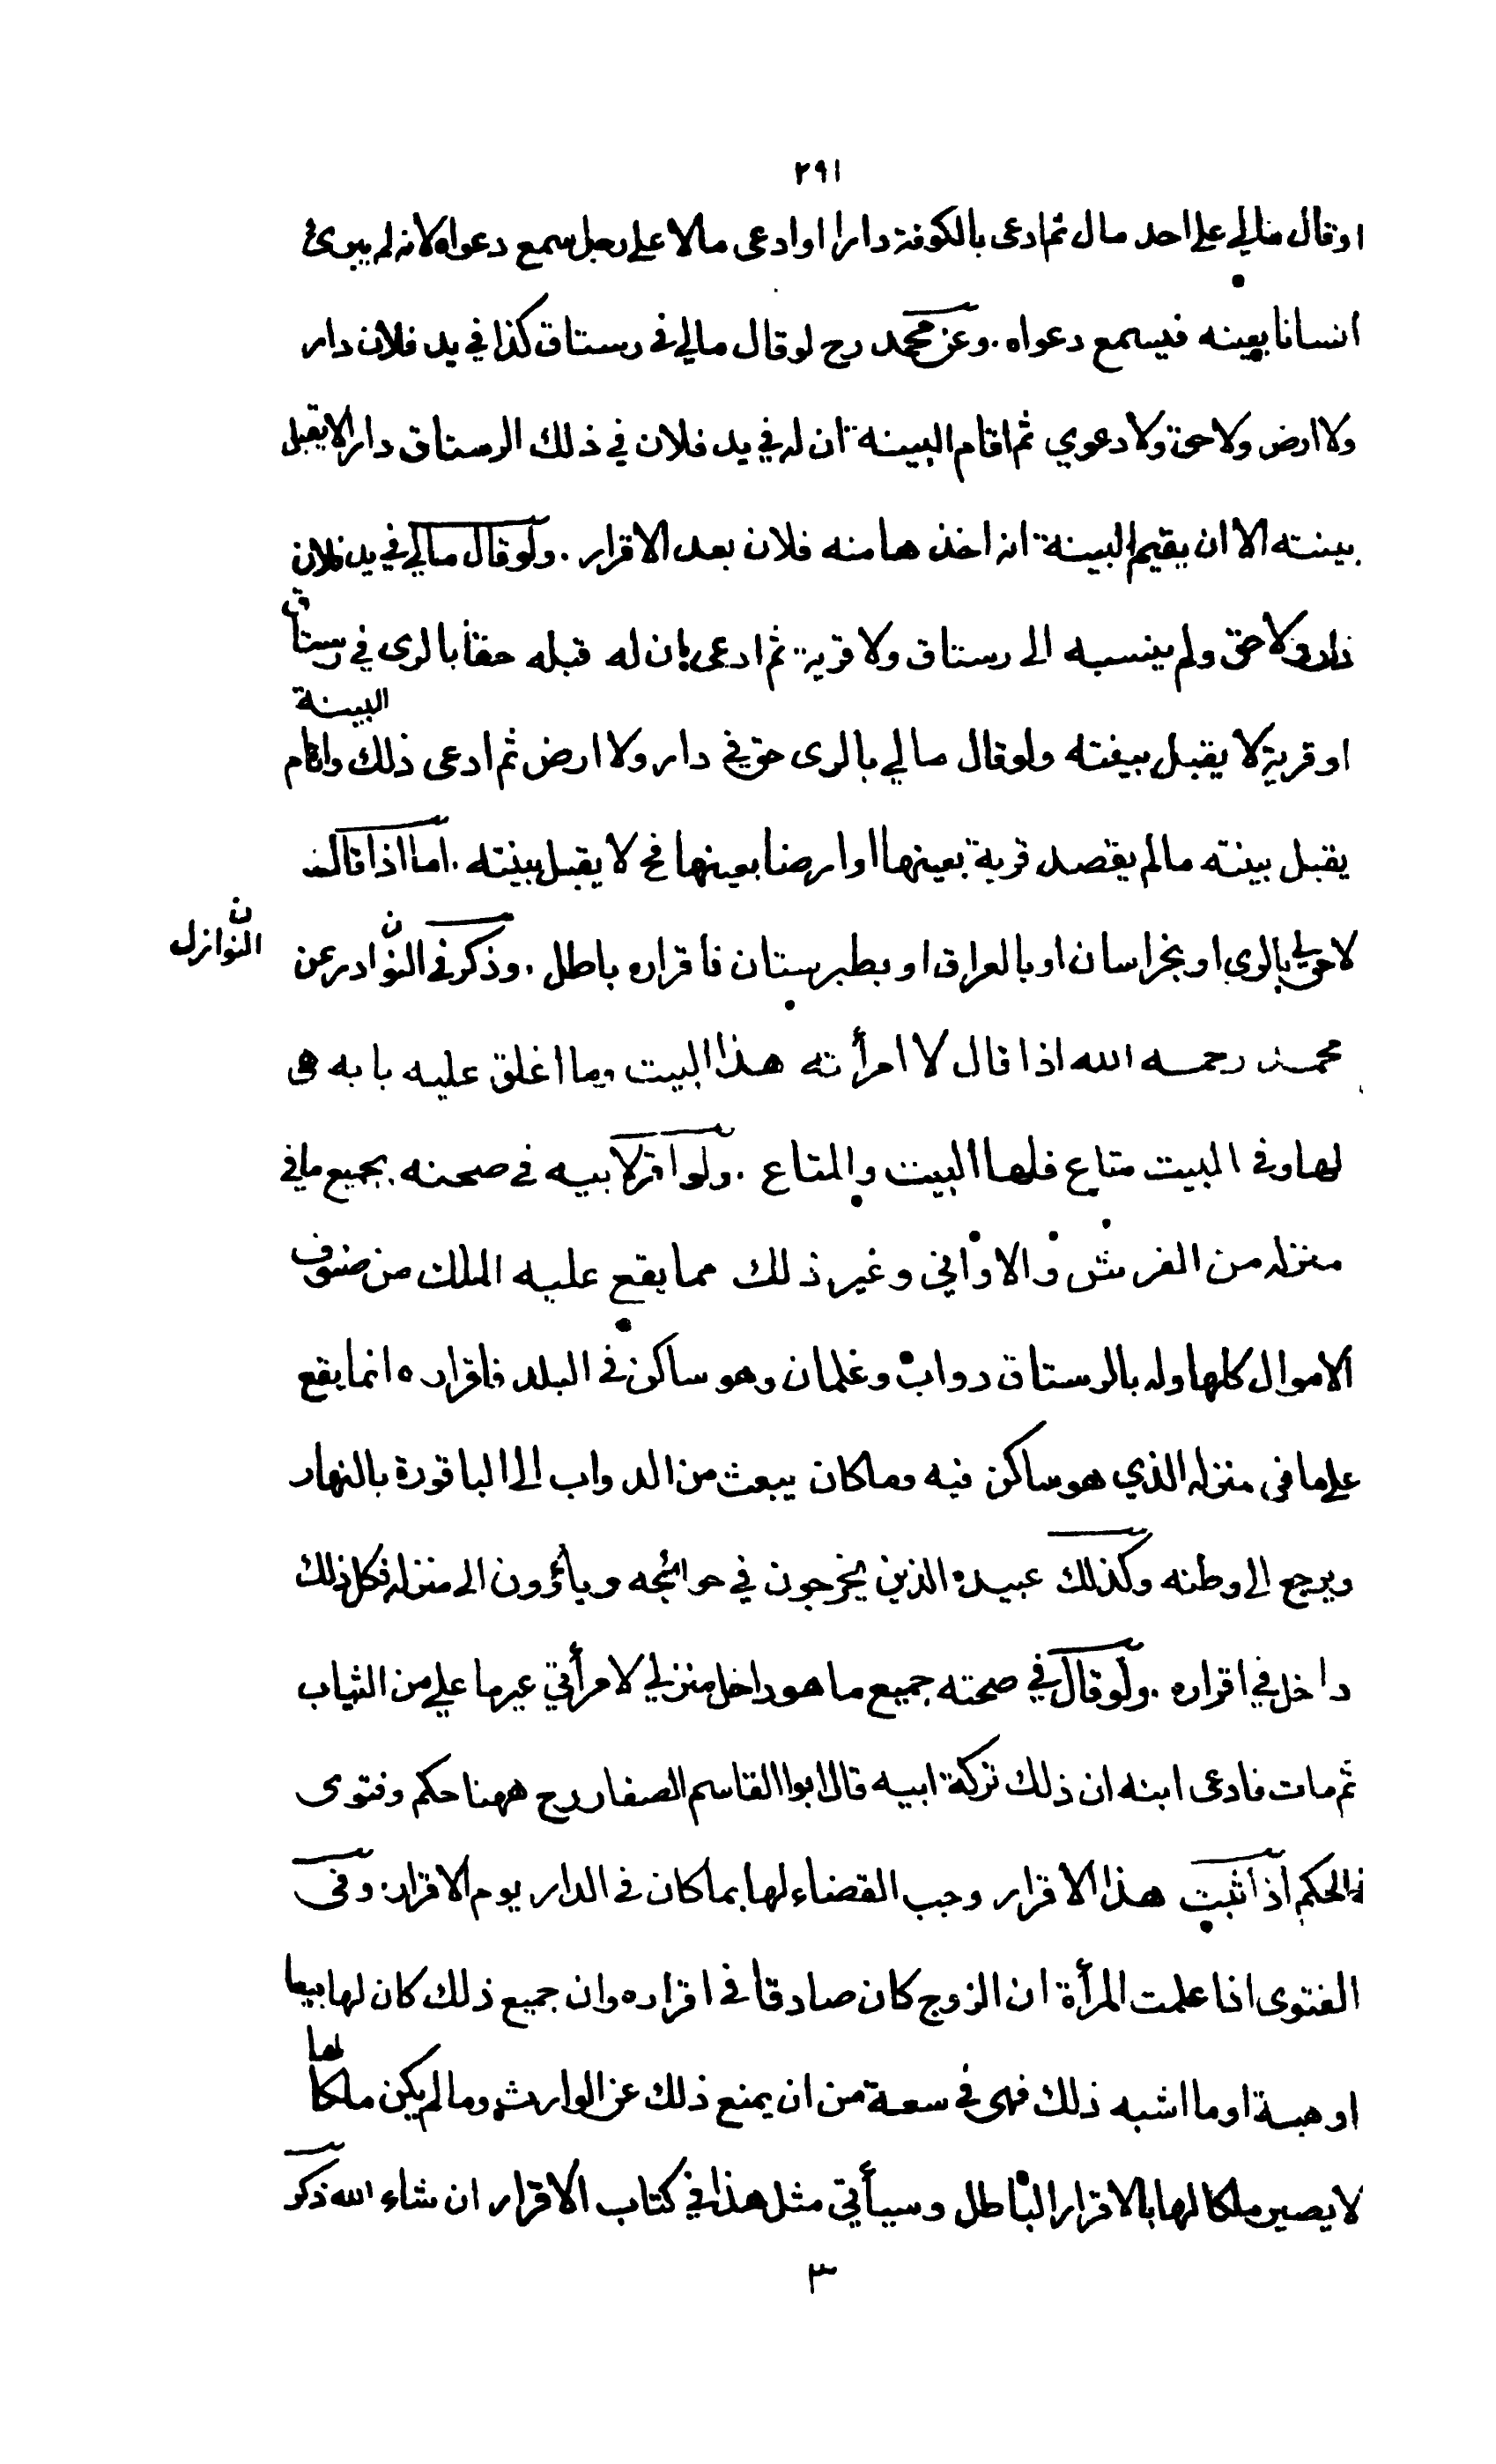 ٢٩١
او قال مالي على احد مال ثم ادعى بالكوفة دارا او ادعى مالا على رجل يسمع دعواه لانه لم يبرئ
انسانا بعينه فيسمع دعواه . وعن محمد رح لو قال مالي في رستاق كذا في يد فلان دار
ولا ارض ولا حق ولا دعوي ثم اقام البينة ان له في يد فلان في ذلك الرستاق دارا لا يقبل
بينته الا ان يقيم البينة انه اخذها منه فلان بعد الاقرار . ولو قال مالي في يد فلان
دار ولا حق ولم ينسبه الى رستاق ولا قرية ثم ادعى بان له قبله حقا بالرى في رستاق
او قرية لا يقبل بينته ولو قال مالي بالرى حق في دار ولا ارض ثم ادعى ذلك واقام البينة
يقبل بينته مالم يقصد قرية بعينها او ارضا بعينها فح لا يقبل بينته . اما اذا قال
لا حق لي بالرى او بخراسان او بالعراق او بطبرستان فاقراره باطل . وذكر في النوادر عن
ن النوازل
محمد رحمه الله اذا قال لا امرأته هذا البيت وما اغلق عليه بابه هى
لها وفي البيت متاع فلها البيت والمتاع . ولو اقر لابيه في صحته بجميع ما في
منزله من الفرش والاواني وغير ذلك مما يقع عليه الملك من صنوف
الاموال كلها وله بالرستاق دواب وغلمان وهو ساكن في البلد فاقراره انما يقع
على ما في منزله الذي هو ساكن فيه وما كان يبعث من الدواب الى الباقورة بالنهار
ويرجع الى وطنه وكذلك عبيده الذين يخرجون في حوائجه ويأوون الى منزله فكل ذلك
داخل في اقراره . ولو قال في صحته جميع ما هو داخل منزلي لامرأتي غير ما علي من الثياب
ثم مات فادعى ابنه ان ذلك تركة ابيه قال ابوا القاسم الصفار رح ههنا حكم وفتوى
فالحكم اذا ثبت هذا الاقرار وجب القضاء لها بما كان في الدار يوم الاقرار . وفى
الفتوى اذا علمت المرأة ان الزوج كان صادقا في اقراره وان جميع ذلك كان لها بيعا
او هبة او ما اشبه ذلك فهى في سعة من ان يمنع ذلك عن الوارث وما لم يكن ملكا لها
لا يصير ملكا لها بالاقرار الباطل وسيأتي مثل هذا في كتاب الاقرار ان شاء الله ذكر